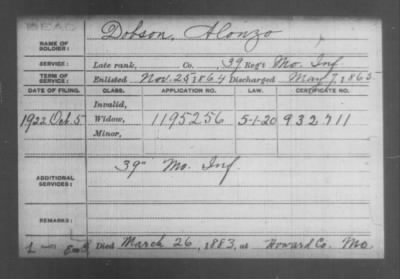 DEAD
Dobson, Alonzo
NAME OF SOLDIER:
SERVICE: Late rank, Co. 39 Reg't Mo. Inf
TERM OF SERVICE: Enlisted Nov. 25, 1864 Discharged May 7, 1865
DATE OF FILING. CLASS. APPLICATION NO. LAW. CERTIFICATE NO.
Invalid,
1922 Oct. 5 Widow, 1195256 5-1-20 932711
Minor,
ADDITIONAL SERVICES: 39" Mo. Inf.
REMARKS:
Died March 26, 1883, at Howard Co. Mo.